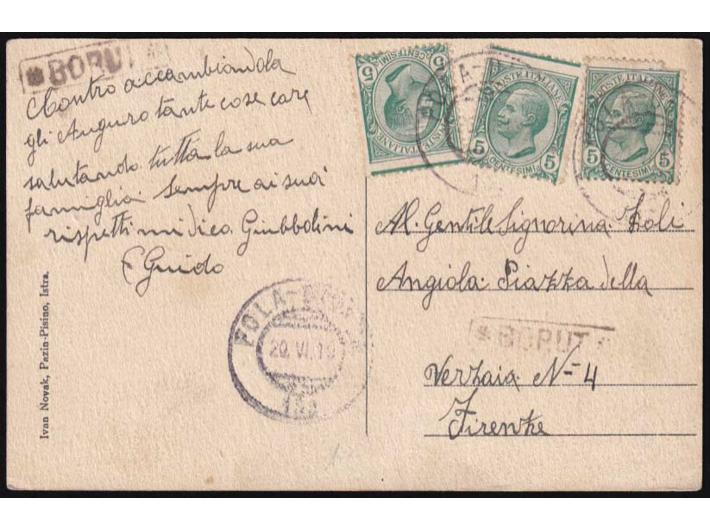 BORUT
Contro accambiandola
gli Auguro tante cose care
salutando tutta la sua
famiglia Sempre ai suoi
rispetti mi dico Giubbolini
Guido
POLA-DIVACA
20.VI.19
Ivan Novak, Pazin-Pisino, Istra.
5 CENTESIMI 5
POSTE ITALIANE
POSTE ITALIANE
5 CENTESIMI 5
POSTE ITALIANE
5 CENTESIMI 5
Al. Gentile Signorina
Angiola Piazza della
BORUT
Verzaia N-4
Firenze